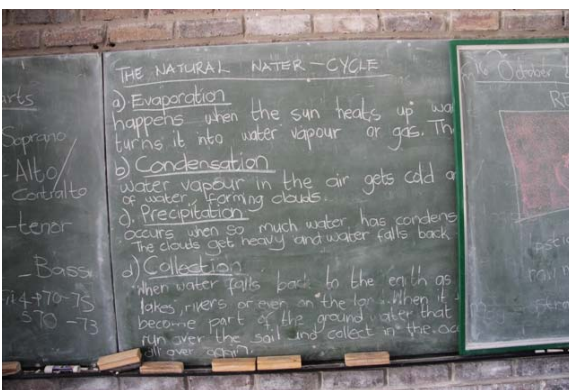 arts
Soprano
- Alto/
Contralto
- tenor
- Bass
70-75
70-73
THE NATURAL WATER-CYCLE
a) Evaporation
happens when the sun heats up
turns it into water vapour or gas.
b) Condensation
water vapour in the air gets cold
of water, forming clouds.
c). Precipitation
occurs when so much water has condens
The clouds get heavy and water falls back
d) Collection
When water falls back to the earth as
lakes, rivers or even on the When it
become part of the ground water that
run over the soil and collect in the
all over again.
October
RE